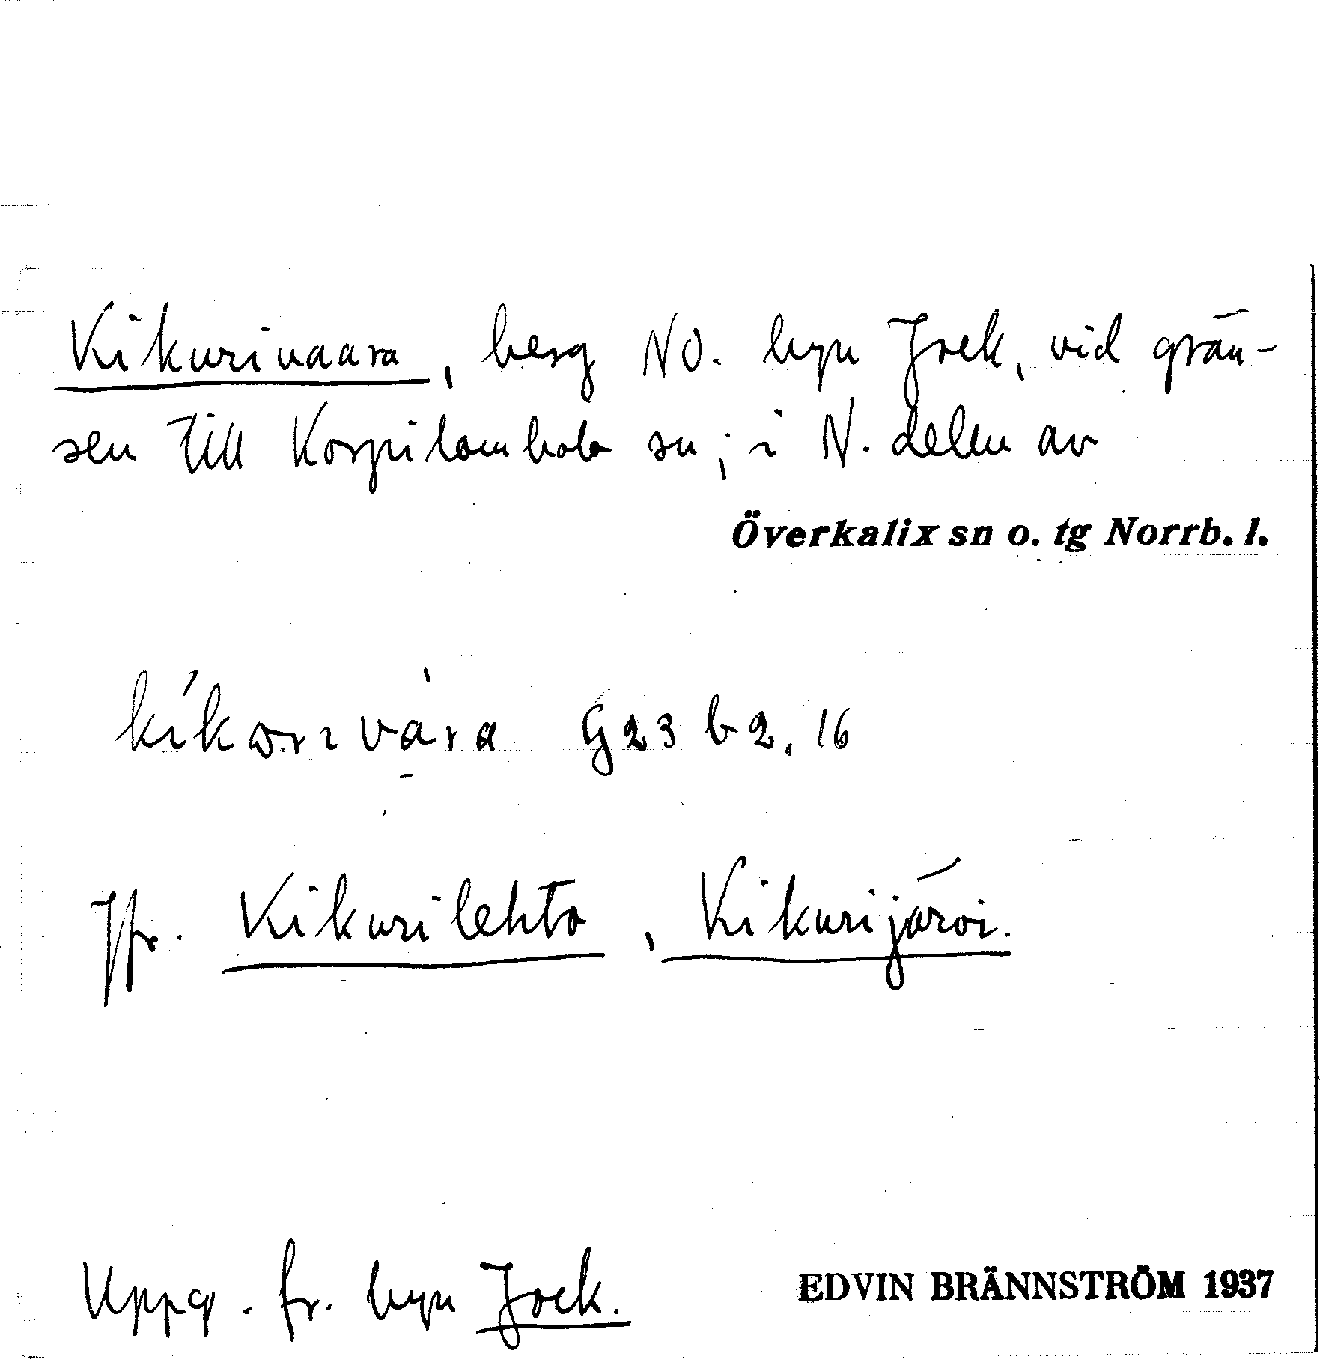 Kikurivaara, berg NO. byn Jock, vid grän-
sen till Korpilombolo sn; i N. delen av
Överkalix sn o. tg Norrb. l.
G23 b2, 16
Jfr. Kikurilehto, Kikurijärvi.
Uppg. fr. byn Jock.
EDVIN BRÄNNSTRÖM 1937